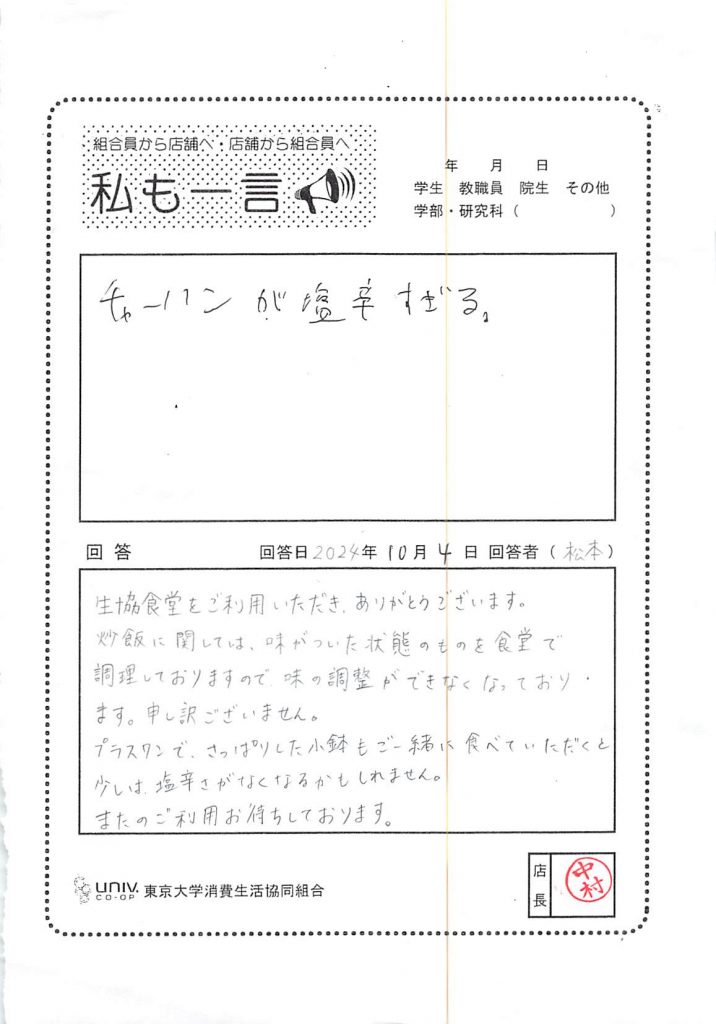 組合員から店舗へ・店舗から組合員へ
私も一言
年 月 日
学生 教職員 院生 その他
学部・研究科( )
チャーハンが塩辛すぎる。
回答 回答日2024年10月4日 回答者(松本)
生協食堂をご利用いただき、ありがとうございます。
炒飯に関しては、味がついた状態のものを食堂で
調理しておりますので、味の調整ができなくなっており
ます。申し訳ございません。
プラスワンで、さっぱりした小鉢もご一緒に食べていただくと
少しは、塩辛さがなくなるかもしれません。
またのご利用お待ちしております。
店長
中村
UNIV. CO-OP 東京大学消費生活協同組合